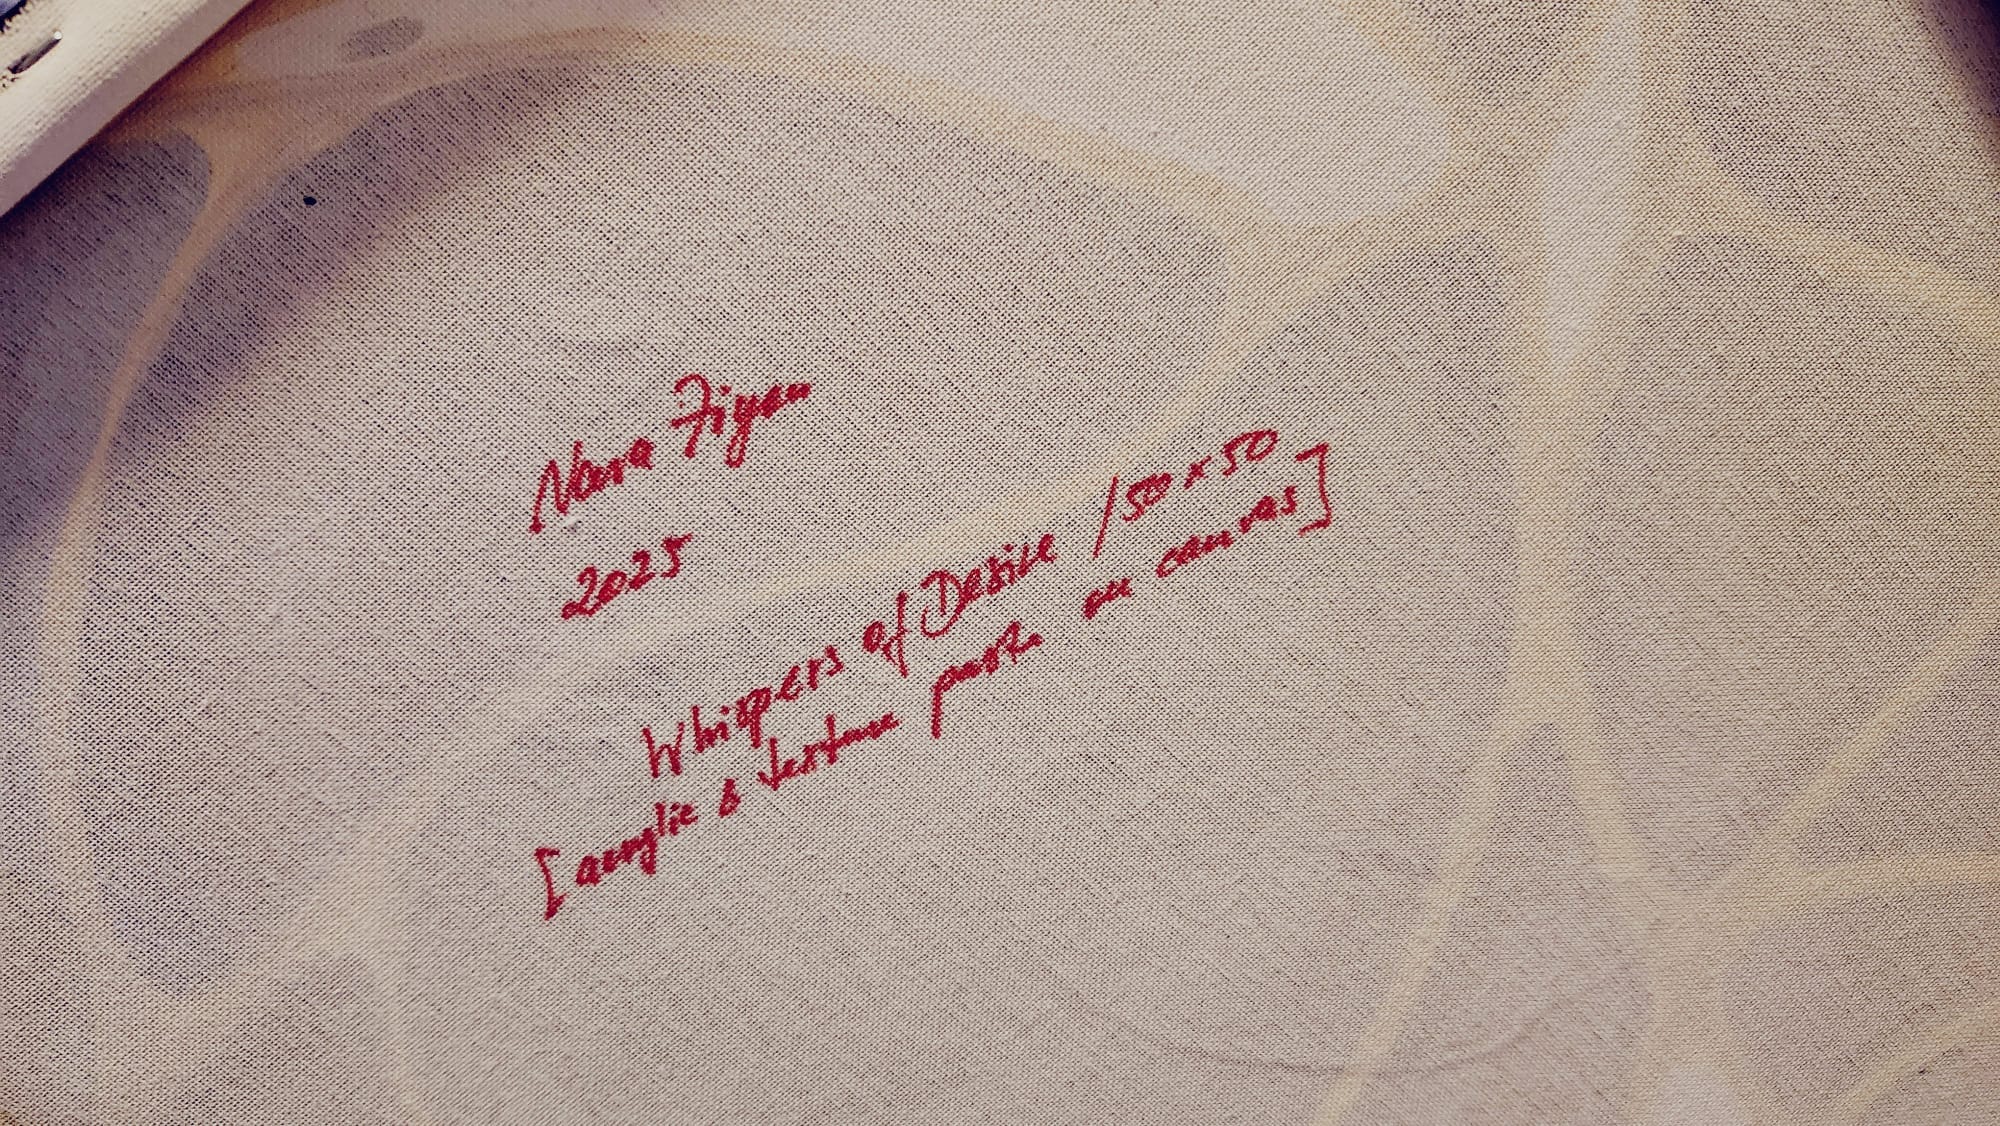 Nara Figan
2025
Whispers of Desire / 50 x 50
[acrylic & texture paste on canvas]